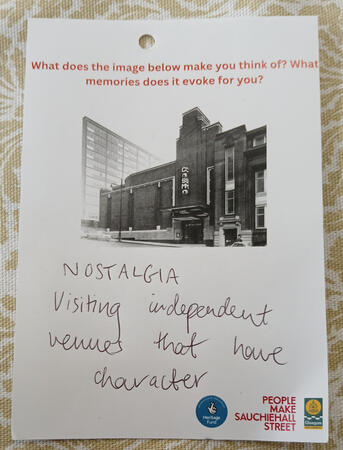 What does the image below make you think of? What
memories does it evoke for you?
NOSTALGIA
Visiting independent
venues that have
character
Heritage
Fund
PEOPLE
MAKE
SAUCHIEHALL
STREET
Glasgow